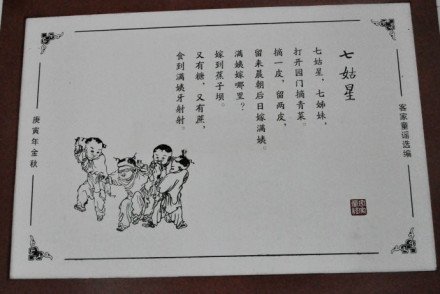 七姑星
七姑星，七姊妹，
打开园门摘青菜。
摘一皮，留两皮，
留来晨朝后日嫁满姨。
满姨嫁哪里？
嫁到蕉子坝。
又有糖，又有蔗，
食到满姨牙射射。
客家童谣选编
庚寅年金秋